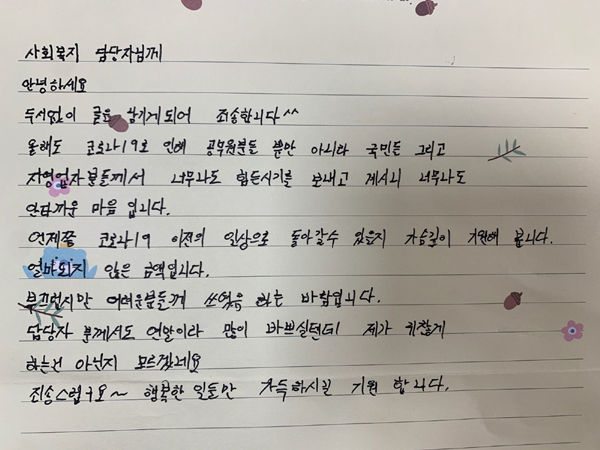 사회복지 담당자님께
안녕하세요
두서없이 글을 남기게되어 죄송합니다^^
올해도 코로나19로 인해 공무원분들 뿐만 아니라 국민든 그리고
자영업자분들께서 너무나도 힘든시기를 보내고 계셔니 너무나도
안타까운 마음 입니다.
언제쯤 코로나19 이전의 일상으로 돌아갈수 있을지 가슴깊이 기원해 봅니다.
얼마되지 않은 금액입니다.
부끄럽지만 어려운분들께 쓰였음 하는 바람입니다.
담당자 분께서도 연말이라 많이 바쁘실텐데 제가 귀찮게
하는건 아닌지 모르겠네요
죄송스럽구요~ 행복한 일들만 가득하시길 기원 합니다.